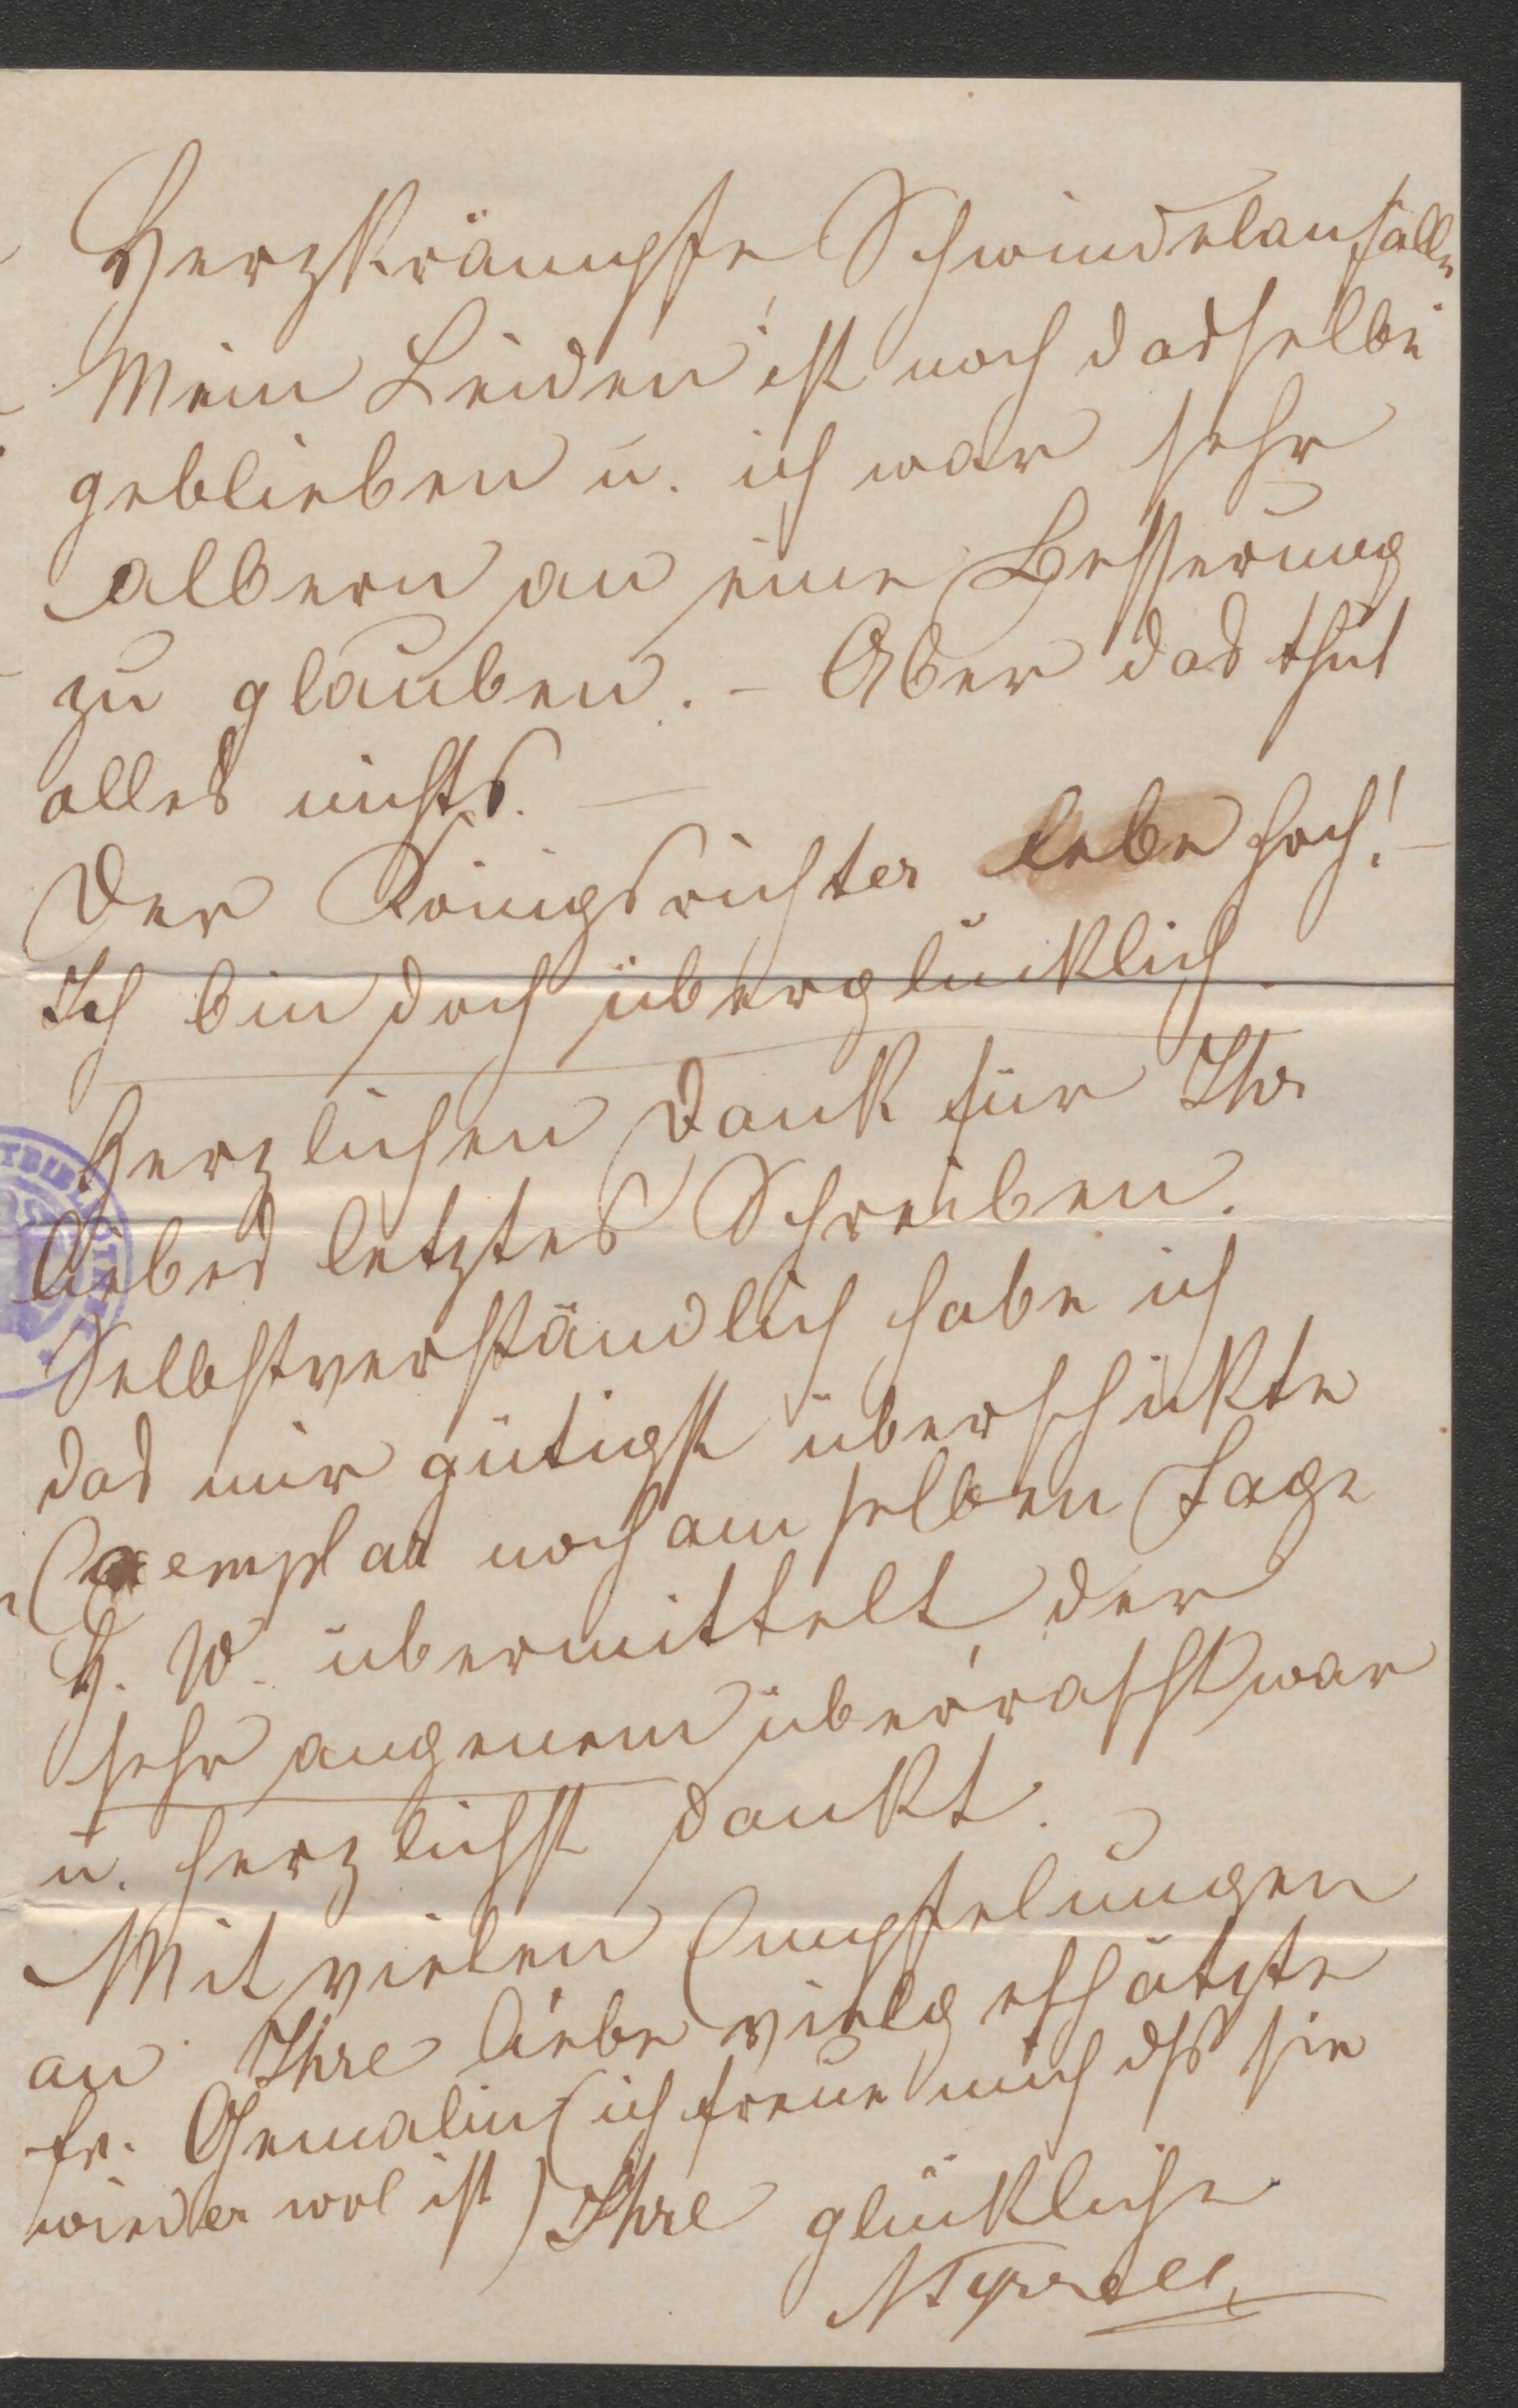 Herzkrämpfe, Schwindelanfälle
Mein Leiden ist noch dasselbe
geblieben u. ich war sehr
albern an eine Besserung
zu glauben. – Aber das thut
alles nichts. —
Der Königsrichter lebe hoch! –
Ich bin doch überglücklich.
Herzlichen Dank für Ihr
liebes letztes Schreiben.
Selbstverständlich habe ich
das mir gütigst überschikte
Exemplar noch am selben Tage
H. W. übermittelt der
sehr angenem überrascht war
u. herzlichst dankt.
Mit vielen Empfelungen
an Ihre liebe vielgeschätzte
fr. Gemalin (ich freue mich dß sie
wieder wol ist) Ihre glückliche
NTyrrell